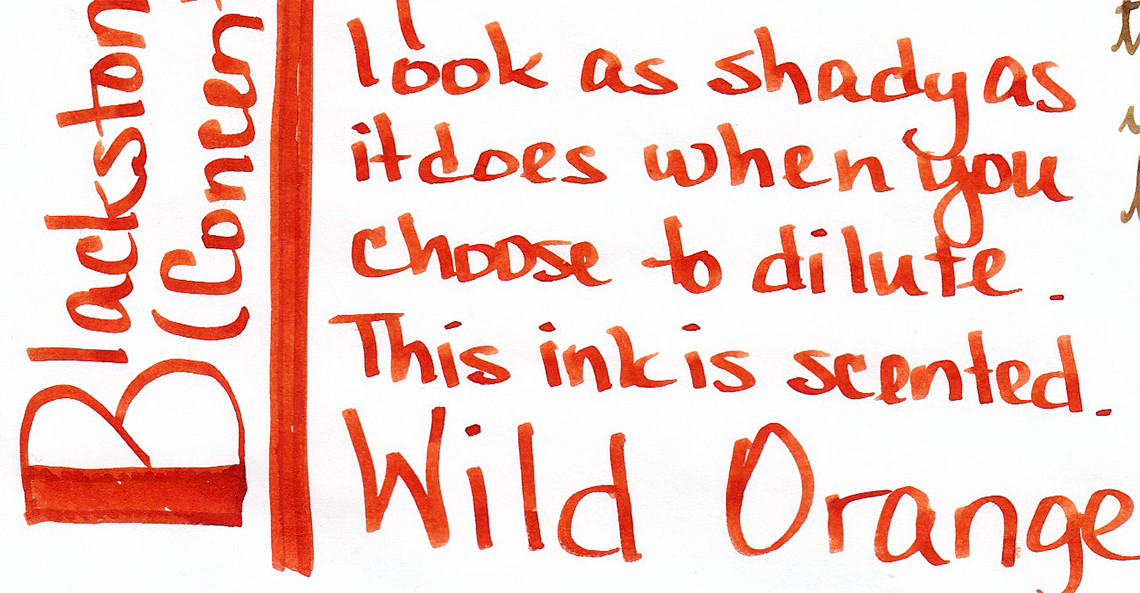 look as shady as
it does when you
choose to dilute.
This ink is scented.
Wild Orange
Blackston